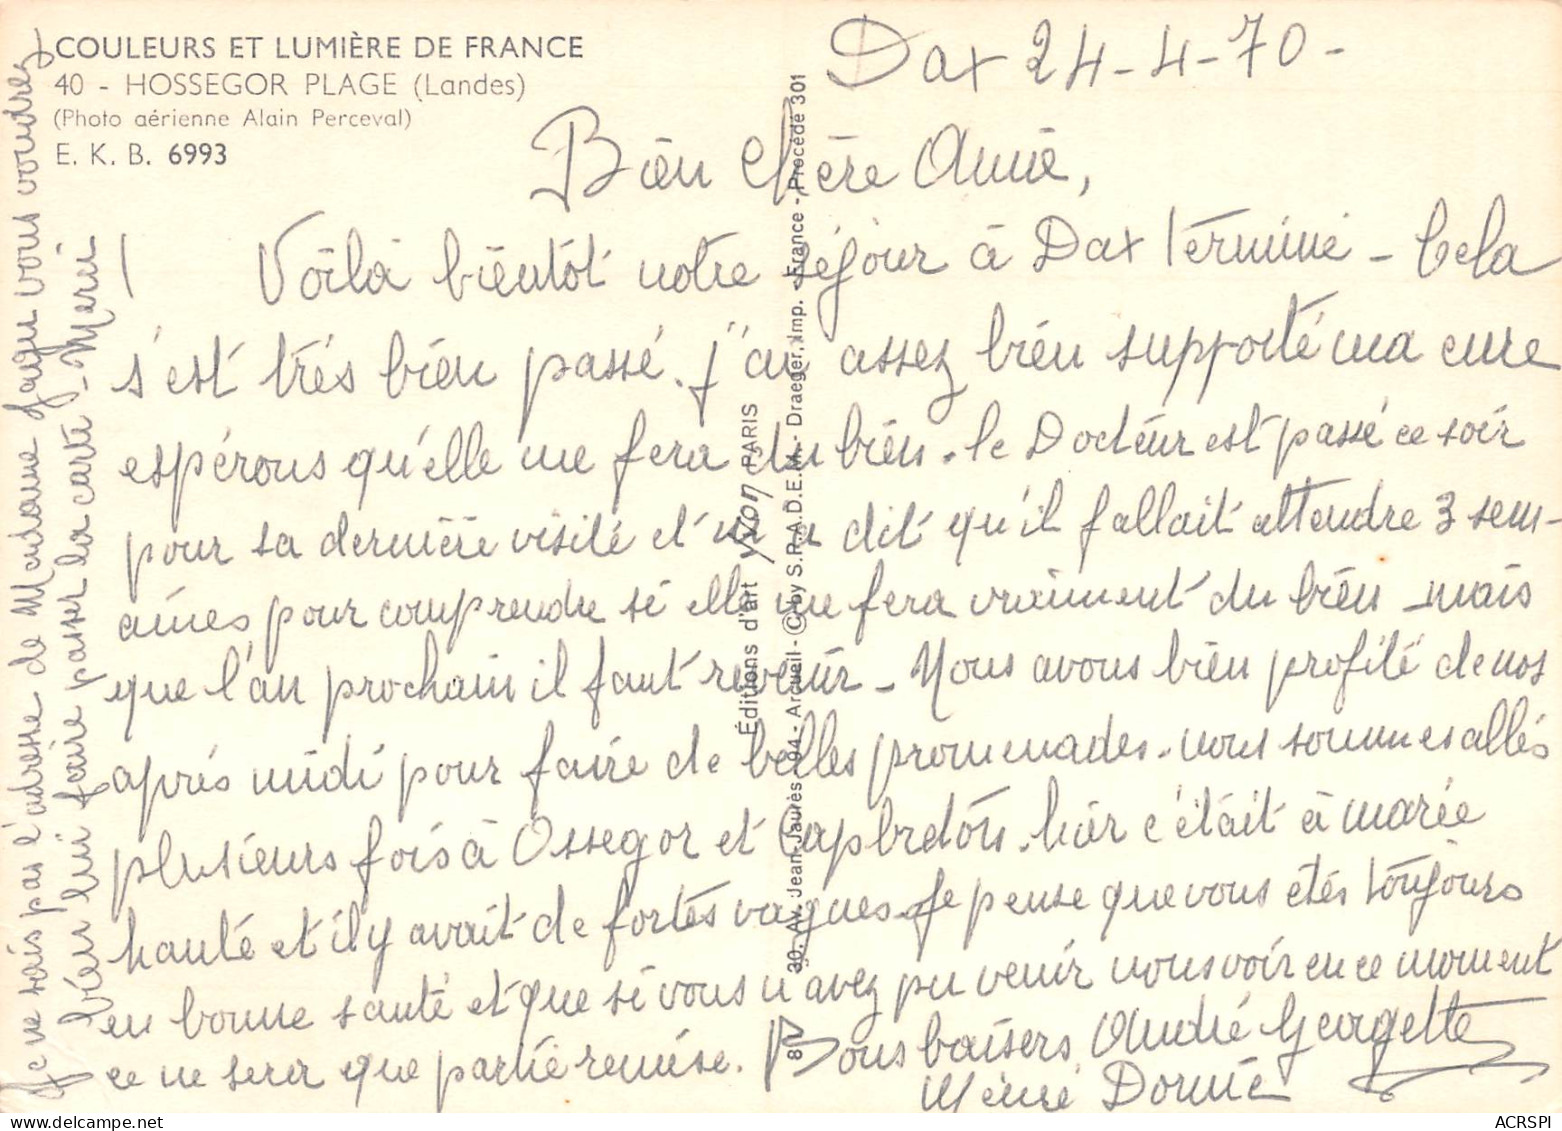 COULEURS ET LUMIÈRE DE FRANCE
40 - HOSSEGOR PLAGE (Landes)
(Photo aérienne Alain Perceval)
E. K. B. 6993
Dax 24-4-70-
Bien Chère Annie,
Voilà bientôt notre séjour à Dax terminé - Cela
s'est très bien passé. J'ai assez bien supporté ma cure
espérons qu'elle me fera du bien. le Docteur est passé ce soir
pour sa dernière visite et m'a dit qu'il fallait attendre 3 sem-
aines pour comprendre si elle me fera vraiment du bien - mais
que l'an prochain il faut revenir - Nous avons bien profité de nos
après midi pour faire de belles promenades. nous sommes allés
plusieurs fois à Ossegor et Capbreton. hier c'était à marée
haute et il y avait de fortes vagues. Je pense que vous êtes toujours
en bonne santé et que si vous n'avez pu venir nous voir en ce moment
ce ne sera que partie remise. Bons baisers André Georgette
Mémé Dormie
Je ne sais pas l'adresse de Madame Jagu vous voudrez
bien lui faire passer la carte - Merci !
Éditions d'art yvon PARIS
30, Av. Jean-Jaurès - 94 - Arcueil - © by S.P.A.D.E.M. - Draeger, imp. - France - Procédé 301
8
ACRSPI